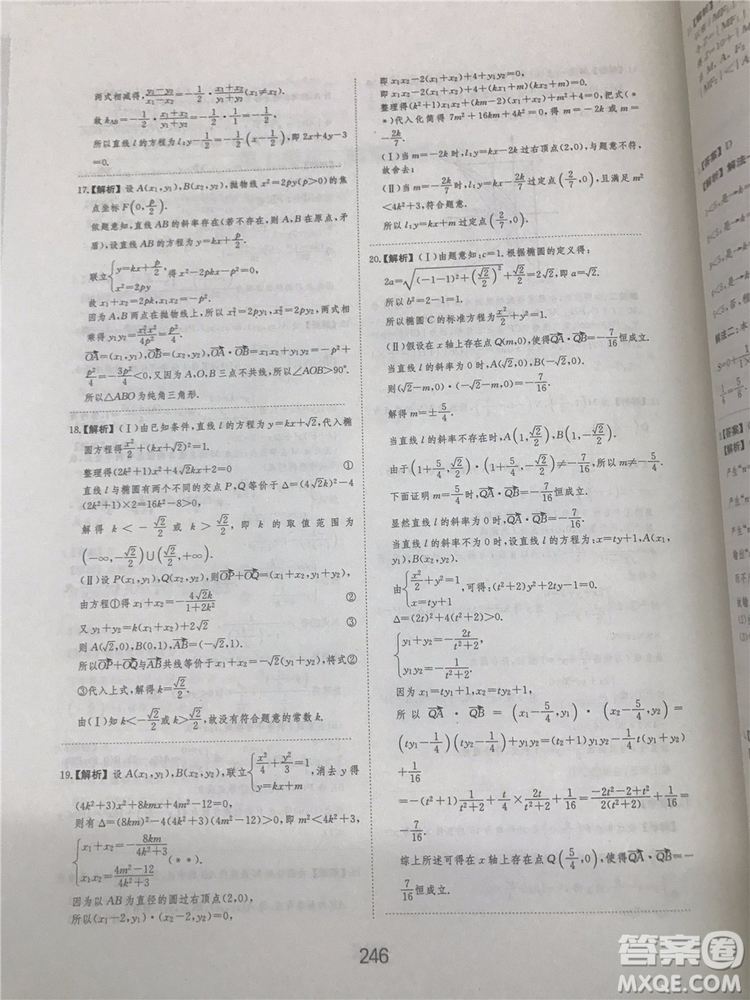 两式相减得,\frac{y_1-y_2}{x_1-x_2}=-\frac{1}{2}·\frac{x_1+x_2}{y_1+y_2}(x_1≠x_2).
故k_{AB}=-\frac{1}{2}·\frac{x_1+x_2}{y_1+y_2}=-\frac{1}{2}·
所以直线l的方程为y-\frac{1}{2}=-\frac{1}{2}(x-\frac{1}{2}),即2x+4y-3
=0.
17.【解析】设A(x_1,y_1),B(x_2,y_2),抛物线x^2=2py(p>0)的焦
点坐标F(0,\frac{p}{2}).
依题意知,直线AB的斜率存在(若不存在,则A,B在原点,矛
盾),设直线AB的方程为y=kx+\frac{p}{2}.
联立{y=kx+\frac{p}{2}
x^2=2py
故x_1+x_2=2pk,x_1x_2=-p^2.
因为A,B两点在抛物线上,所以x_1^2=2py_1,x_2^2=2py_2,两式相
乘得y_1y_2=\frac{x_1^2x_2^2}{4p^2}=\frac{p^2}{4}.
\vec{OA}=(x_1,y_1),\vec{OB}=(x_2,y_2),\vec{OA}·\vec{OB}=x_1x_2+y_1y_2=-p^2+
\frac{p^2}{4}=-\frac{3p^2}{4}<0,又因为A,O,B三点不共线,所以∠AOB>90°.
所以△ABO为钝角三角形.
18.【解析】(Ⅰ)由已知条件,直线l的方程为y=kx+√2,代入椭
圆方程得\frac{x^2}{2}+(kx+√2)^2=1.
整理得(2k^2+1)x^2+4√2kx+2=0 ①
直线l与椭圆有两个不同的交点P,Q等价于Δ=(4√2k)^2-4
(2k^2+1)×2=16k^2-8>0,
解得k<-\frac{√2}{2}或k>\frac{√2}{2},即k的取值范围为
(-∞,-\frac{√2}{2})∪(\frac{√2}{2},+∞).
(Ⅱ)设P(x_1,y_1),Q(x_2,y_2),则\vec{OP}+\vec{OQ}=(x_1+x_2,y_1+y_2),
由方程①得x_1+x_2=-\frac{4√2k}{1+2k^2} ②
又y_1+y_2=k(x_1+x_2)+2√2 ③
则A(√2,0),B(0,1),\vec{AB}=(-√2,1).
所以\vec{OP}+\vec{OQ}与\vec{AB}共线等价于x_1+x_2=-√2(y_1+y_2),将式②
③代入上式,解得k=\frac{√2}{2}.
由(Ⅰ)知k<-\frac{√2}{2}或k>\frac{√2}{2},故没有符合题意的常数k.
19.【解析】设A(x_1,y_1),B(x_2,y_2),联立{\frac{x^2}{4}+\frac{y^2}{3}=1,消去y得
y=kx+m
(4k^2+3)x^2+8kmx+4m^2-12=0,
则有Δ=(8km)^2-4(4k^2+3)(4m^2-12)>0,即m^2<4k^2+3,
{x_1+x_2=-\frac{8km}{4k^2+3}
x_1x_2=\frac{4m^2-12}{4k^2+3} (**).
因为以AB为直径的圆过右顶点(2,0),
所以(x_1-2,y_1)·(x_2-2,y_2)=0,
即x_1x_2-2(x_1+x_2)+4+y_1y_2=0,
即x_1x_2-2(x_1+x_2)+4+(kx_1+m)(kx_2+m)=0.
整理得(k^2+1)x_1x_2+(km-2)(x_1+x_2)+m^2+4=0,把式(*
*)代入化简得7m^2+16km+4k^2=0,所以m=-2k或m=
-\frac{2k}{7}.
(Ⅰ)当m=-2k时,直线l:y=kx-2k过右顶点(2,0),不合题意,
故舍去;
(Ⅱ)当m=-\frac{2k}{7}时,直线l:y=kx-\frac{2k}{7}过定点(\frac{2}{7},0),且满足m^2
<4k^2+3,符合题意.
所以l:y=kx+m过定点(\frac{2}{7},0).
20.【解析】(Ⅰ)由题意知:c=1.根据椭圆的定义得:
2a=\sqrt{(-1-1)^2+(\frac{√2}{2})^2}+\frac{√2}{2}=2√2,即a=√2.
所以b^2=2-1=1.
所以椭圆C的标准方程为\frac{x^2}{2}+y^2=1.
(Ⅱ)假设在x轴上存在点Q(m,0),使得\vec{QA}·\vec{QB}=-\frac{7}{16}恒成立.
当直线l的斜率为0时,A(√2,0),B(-√2,0).
则(√2-m,0)·(-√2-m,0)=-\frac{7}{16}.
解得m=±\frac{5}{4}.
当直线l的斜率不存在时,A(1,\frac{√2}{2}),B(1,-\frac{√2}{2}).
由于(1+\frac{5}{4},\frac{√2}{2})·(1+\frac{5}{4},-\frac{√2}{2})≠-\frac{7}{16},所以m≠-\frac{5}{4}.
下面证明m=\frac{5}{4}时,\vec{QA}·\vec{QB}=-\frac{7}{16}恒成立.
显然直线l的斜率为0时,\vec{QA}·\vec{QB}=-\frac{7}{16}.
当直线l的斜率不为0时,设直线l的方程为:x=ty+1,A(x_1,
y_1),B(x_2,y_2).
由{\frac{x^2}{2}+y^2=1,可得:(t^2+2)y^2+2ty-1=0.
x=ty+1
Δ=(2t)^2+4(t^2+2)>0.
{y_1+y_2=-\frac{2t}{t^2+2},
y_1y_2=-\frac{1}{t^2+2}.
因为x_1=ty_1+1,x_2=ty_2+1,
所以\vec{QA}·\vec{QB}=(x_1-\frac{5}{4},y_1)·(x_2-\frac{5}{4},y_2)=
(ty_1-\frac{1}{4})(ty_2-\frac{1}{4})+y_1y_2=(t^2+1)y_1y_2-\frac{1}{4}t(y_1+y_2)
+\frac{1}{16}
=-(t^2+1)\frac{1}{t^2+2}+\frac{t}{4}×\frac{2t}{t^2+2}+\frac{1}{16}=\frac{-2t^2-2+t^2}{2(t^2+2)}+\frac{1}{16}=
-\frac{7}{16}.
综上所述可得在x轴上存在点Q(\frac{5}{4},0),使得\vec{QA}·\vec{QB}=-
\frac{7}{16}恒成立.
246
【答案】D
【解析】解法一
解法二:
【答案】
【解析】
答案圈
MXQE.COM